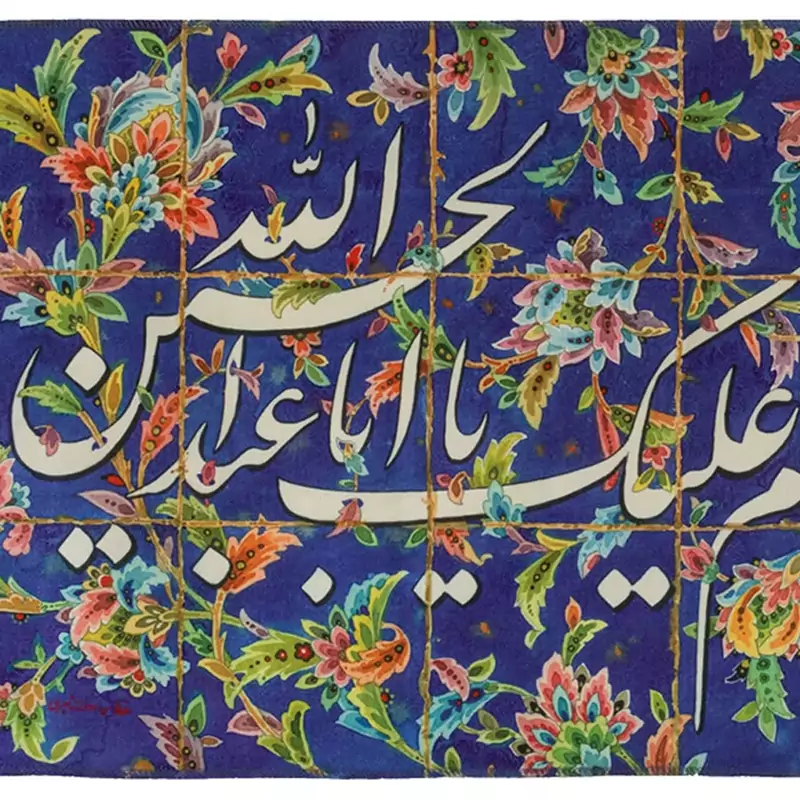 م علیک یا ابا عبد الله الحسین